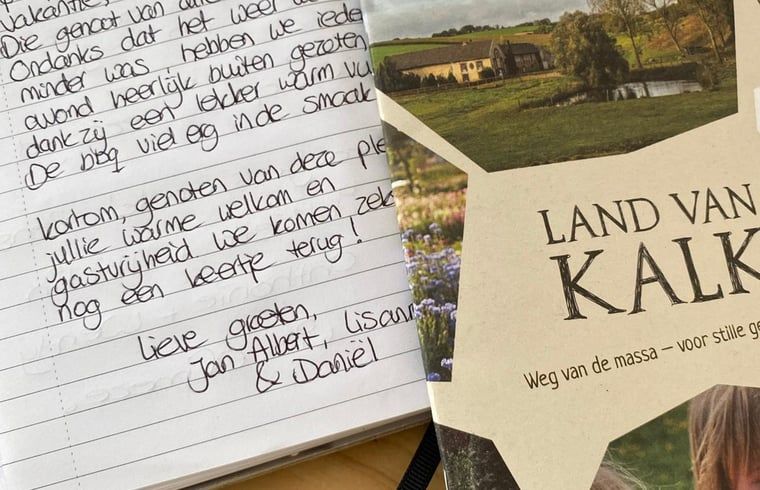 vakantie,
Die genoot van
Ondanks dat het weer
minder was hebben we iede
avond heerlijk buiten gezeten
dankzij een lekker warm vu
De bbq viel erg in de smaak

Kortom, genoten van deze ple
jullie warme welkom en
gastvrijheid we komen zek
nog een keertje terug!
Lieve groeten,
Jan Albert, Lisann
& Daniël
LAND VAN
KALK
Weg van de massa – voor stille ge